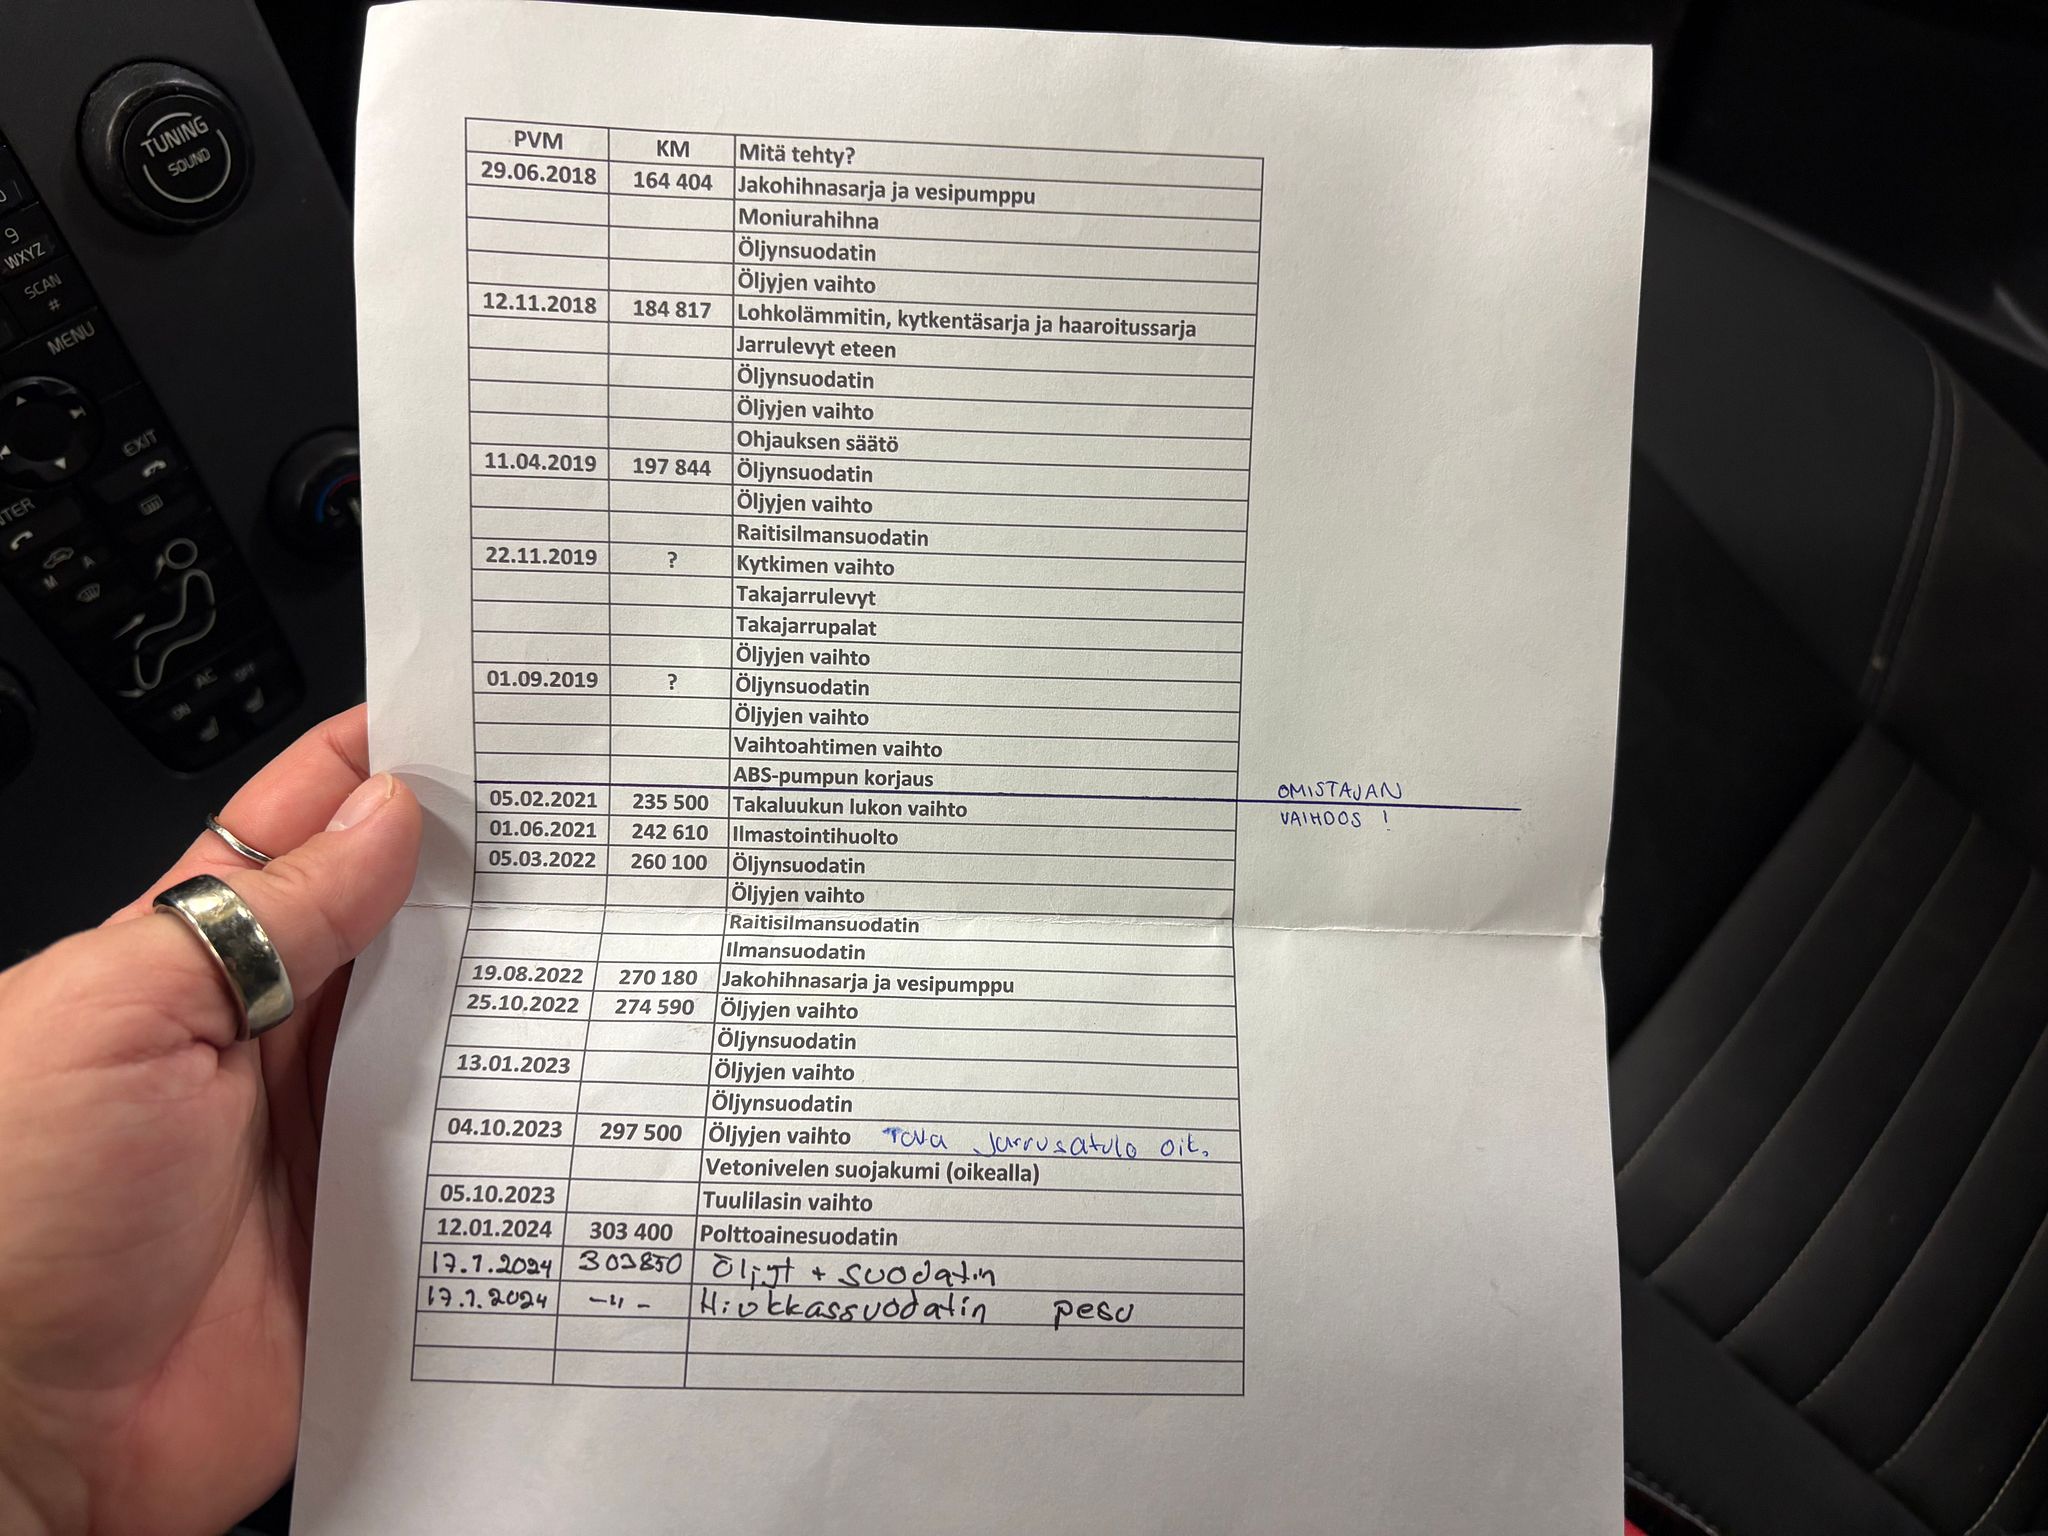 TUNING
SOUND
9
WXYZ
SCAN
#
MENU
EXIT
M A
AC
ON OFF
PVM KM Mitä tehty?
29.06.2018 164 404 Jakohihnasarja ja vesipumppu
Moniurahihna
Öljynsuodatin
Öljyjen vaihto
12.11.2018 184 817 Lohkolämmitin, kytkentäsarja ja haaroitussarja
Jarrulevyt eteen
Öljynsuodatin
Öljyjen vaihto
Ohjauksen säätö
11.04.2019 197 844 Öljynsuodatin
Öljyjen vaihto
Raitisilmansuodatin
22.11.2019 ? Kytkimen vaihto
Takajarrulevyt
Takajarrupalat
Öljyjen vaihto
01.09.2019 ? Öljynsuodatin
Öljyjen vaihto
Vaihtoahtimen vaihto
ABS-pumpun korjaus
OMISTAJAN
VAIHDOS !
05.02.2021 235 500 Takaluukun lukon vaihto
01.06.2021 242 610 Ilmastointihuolto
05.03.2022 260 100 Öljynsuodatin
Öljyjen vaihto
Raitisilmansuodatin
Ilmansuodatin
19.08.2022 270 180 Jakohihnasarja ja vesipumppu
25.10.2022 274 590 Öljyjen vaihto
Öljynsuodatin
13.01.2023 Öljyjen vaihto
Öljynsuodatin
04.10.2023 297 500 Öljyjen vaihto Taka jarrusatula oik.
Vetonivelen suojakumi (oikealla)
05.10.2023 Tuulilasin vaihto
12.01.2024 303 400 Polttoainesuodatin
17.1.2024 303850 Öljyt + suodatin
17.1.2024 -"- Hiukkassuodatin pesu